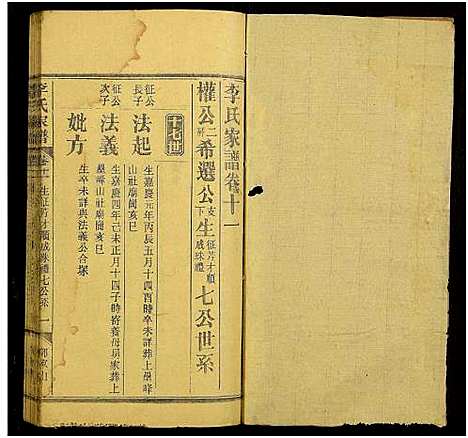 李氏家譜卷十一
權公二房希選公支下生征芳才順咸珠禮七公世系
十七世
征公長子 法起 生嘉慶元年丙辰五月十四酉時卒未詳葬上壘峰
山社廟崗亥巳
征公次子 法義 生嘉慶四年己未正月十四子時寄養母房家葬上
壘峰山社廟崗亥巳
妣方 生卒未詳與法義公合塚
李氏家譜
卷十一 生征芳才順咸珠禮七公系 一